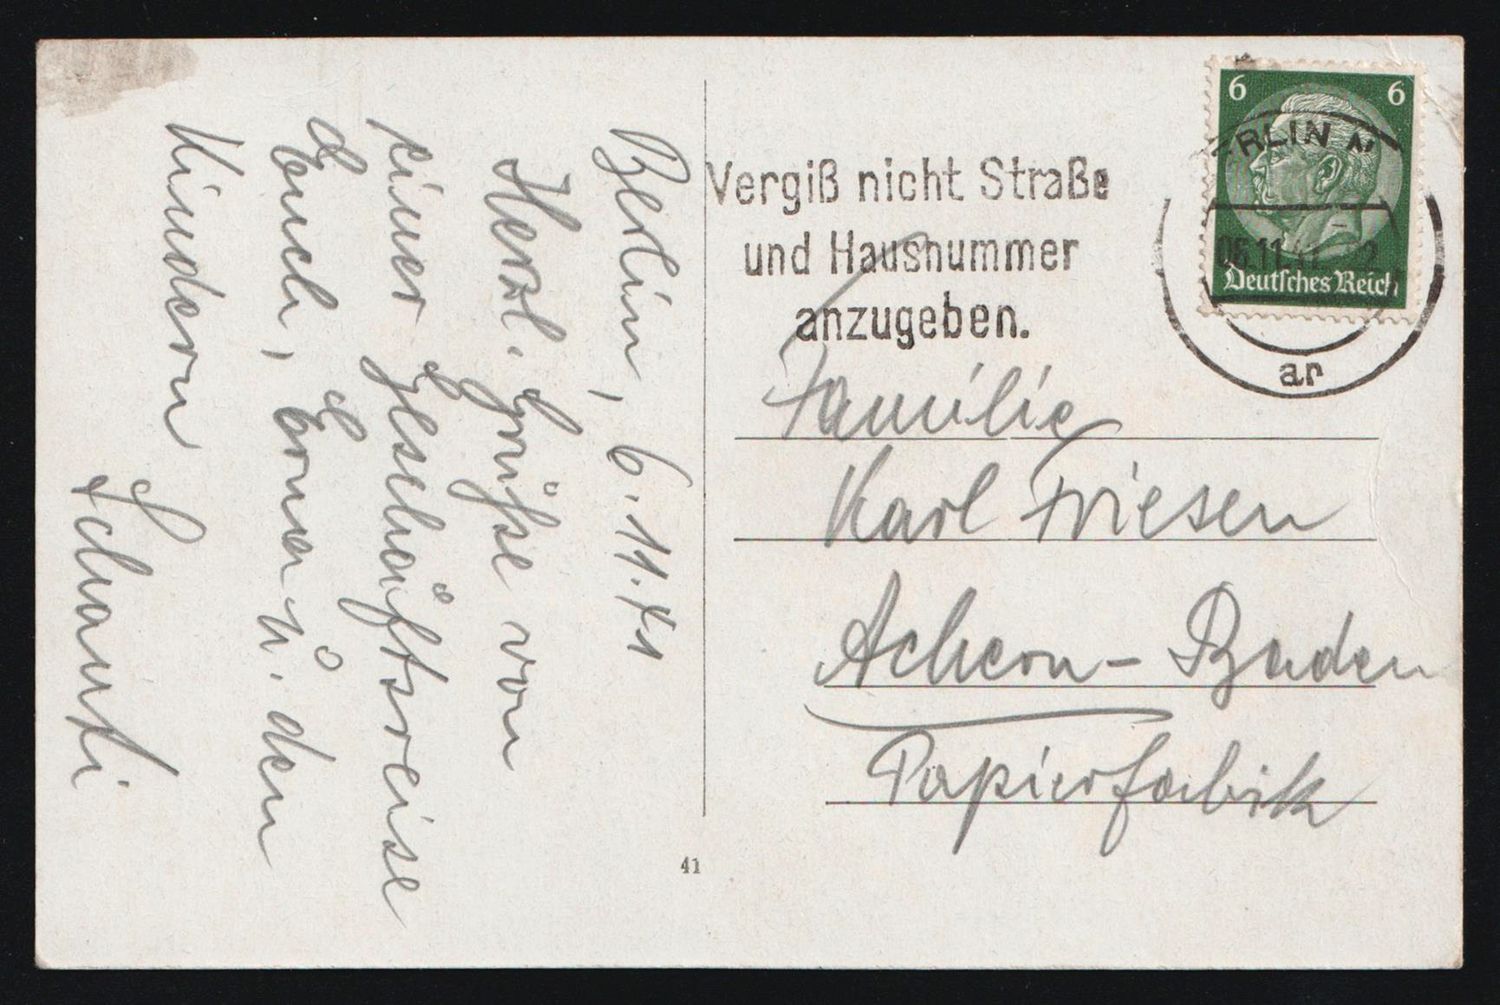 Berlin, 6.11.41
Herzl. Grüße von
einer Geschäftsreise
Euch, Erna u. den
Kindern
Vergiß nicht Straße
und Hausnummer
anzugeben.
6 6
Deutsches Reich
ERLIN N
06.11.41
ar
Familie
Karl Friesen
Achern - Baden
Papierfabrik
41